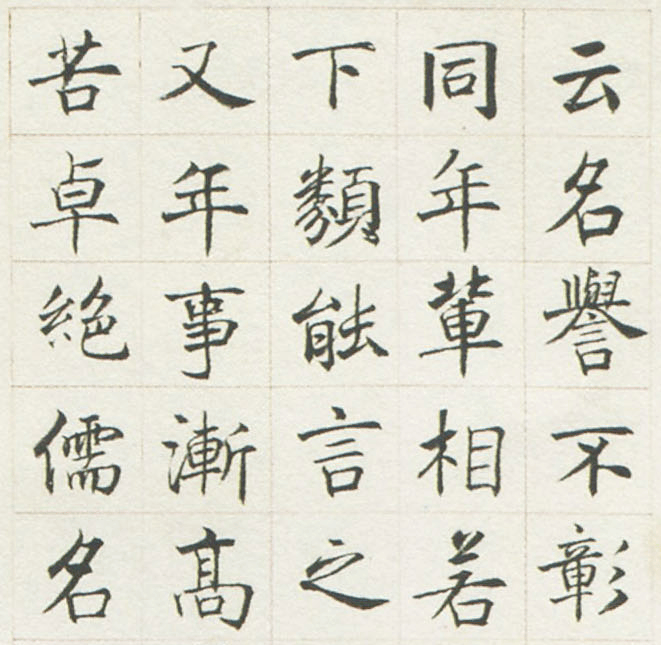 云名譽不彰
同年輩相若
下類能言之
又年事漸高
苦卓絶儒名